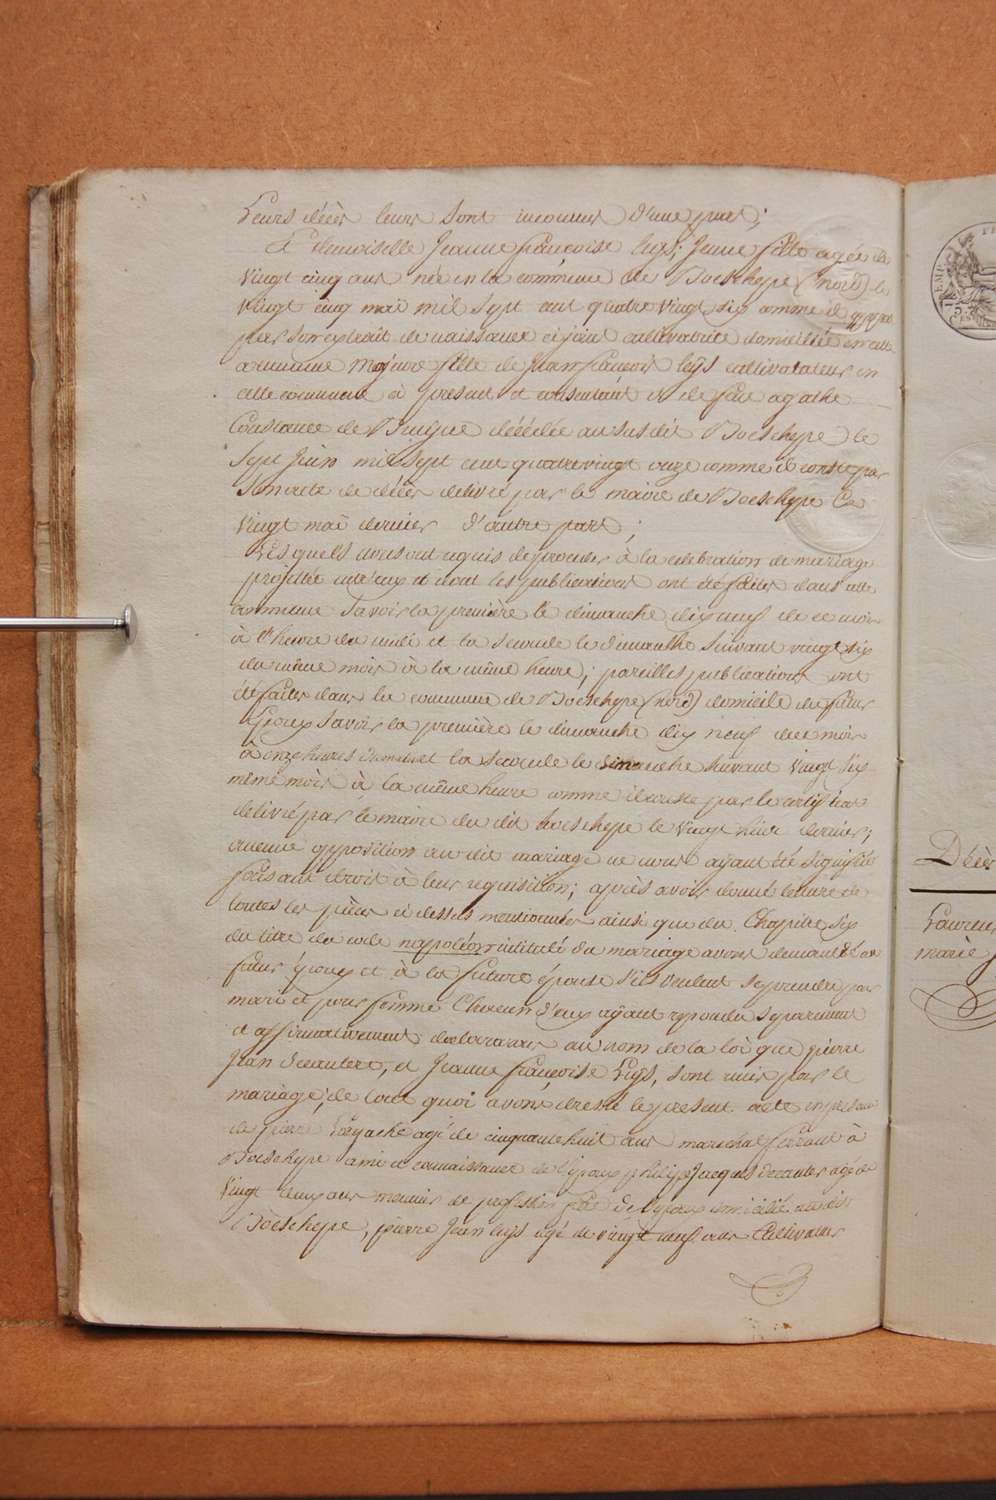 Leurs décès leurs sont inconnus d'une part;
Et demoiselle Jeanne françoise Leys; Jeune fille agée de
vingt cinq ans née en la commune de Boeschepe (nord) le
vingt cinq mai mil sept cent quatre vingt six comme il appert
par son extrait de naissance ci joint cultivatrice domiciliée en cette
commune majeure fille de Jean francois Leys cultivatateur en
cette commune à present et consentant et de feue agathe
Constance de Bruyne décédée au susdit Boeschepe le
Sept Juin mil sept cent quatre vingt onze comme il conste par
Son acte de décès delivré par le maire de Boeschepe Le
vingt mai dernier d'autre part;
Lesquels nous ont requis de proceder à la celebration de mariage
projetté entr'eux et dont les publications ont été faites dans cette
commune Savoir la première le dimanche dix neuf de ce mois
à l'heure de midi et la seconde le dimanche suivant vingt six
du même mois à la même heure; pareilles publications ont
été faites dans la commune de Boeschepe (nord) domicile du futur
Epoux Savoir la première le dimanche dix neuf de ce mois
à onze heures du matin et la seconde le dimanche suivant vingt six
même mois à la même heure comme il conste par le certificat
delivré par le maire du dit boeschepe le vingt huit dernier;
aucune opposition au dit mariage ne nous ayant été signifiée
faisant droit à leur requisition; après avoir donné lecture de
toutes les pièces ci dessus mentionnées ainsi que du Chapitre Six
du titre du code napoléon intitulé du mariage avons demandé au
futur époux et à la future épouse s'ils veulent se prendre pour
mari et pour femme Chacun d'eux ayant repondu separement
et affirmativement declarons au nom de la loi que pierre
Jean Decauter, et Jeanne françoise Leys, sont unis par le
mariage; de tout quoi avons dressé le present acte en presence
de pierre agé de cinquante huit ans marechal ferrant à
Boeschepe ami et connaissance de l'époux philippe Jacques Decauter agé de
vingt deux ans meunier de profession de l'époux domicilié audit
Boeschepe, pierre Jean Leys agé de vingt neuf ans Cultivateur
Décès
Laurent
marie